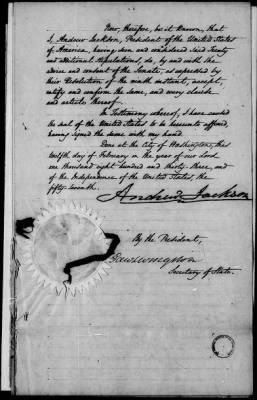 Now, therefore, be it known, that
I, Andrew Jackson, President of the United States
of America, having seen and considered said Treaty
and additional stipulations, do, by and with the
advice and consent of the Senate, as expressed by
their Resolution of the ninth instant, accept,
ratify and confirm the same, and every clause
and article thereof.
In Testimony whereof, I have caused
the seal of the United States to be hereunto affixed,
having signed the same with my hand.
Done at the City of Washington, this
twelfth day of February in the year of our Lord
one thousand eight hundred and thirty three, and
of the Independence of the United States, the
fifty seventh.
Andrew Jackson
By the President,
Secretary of State.